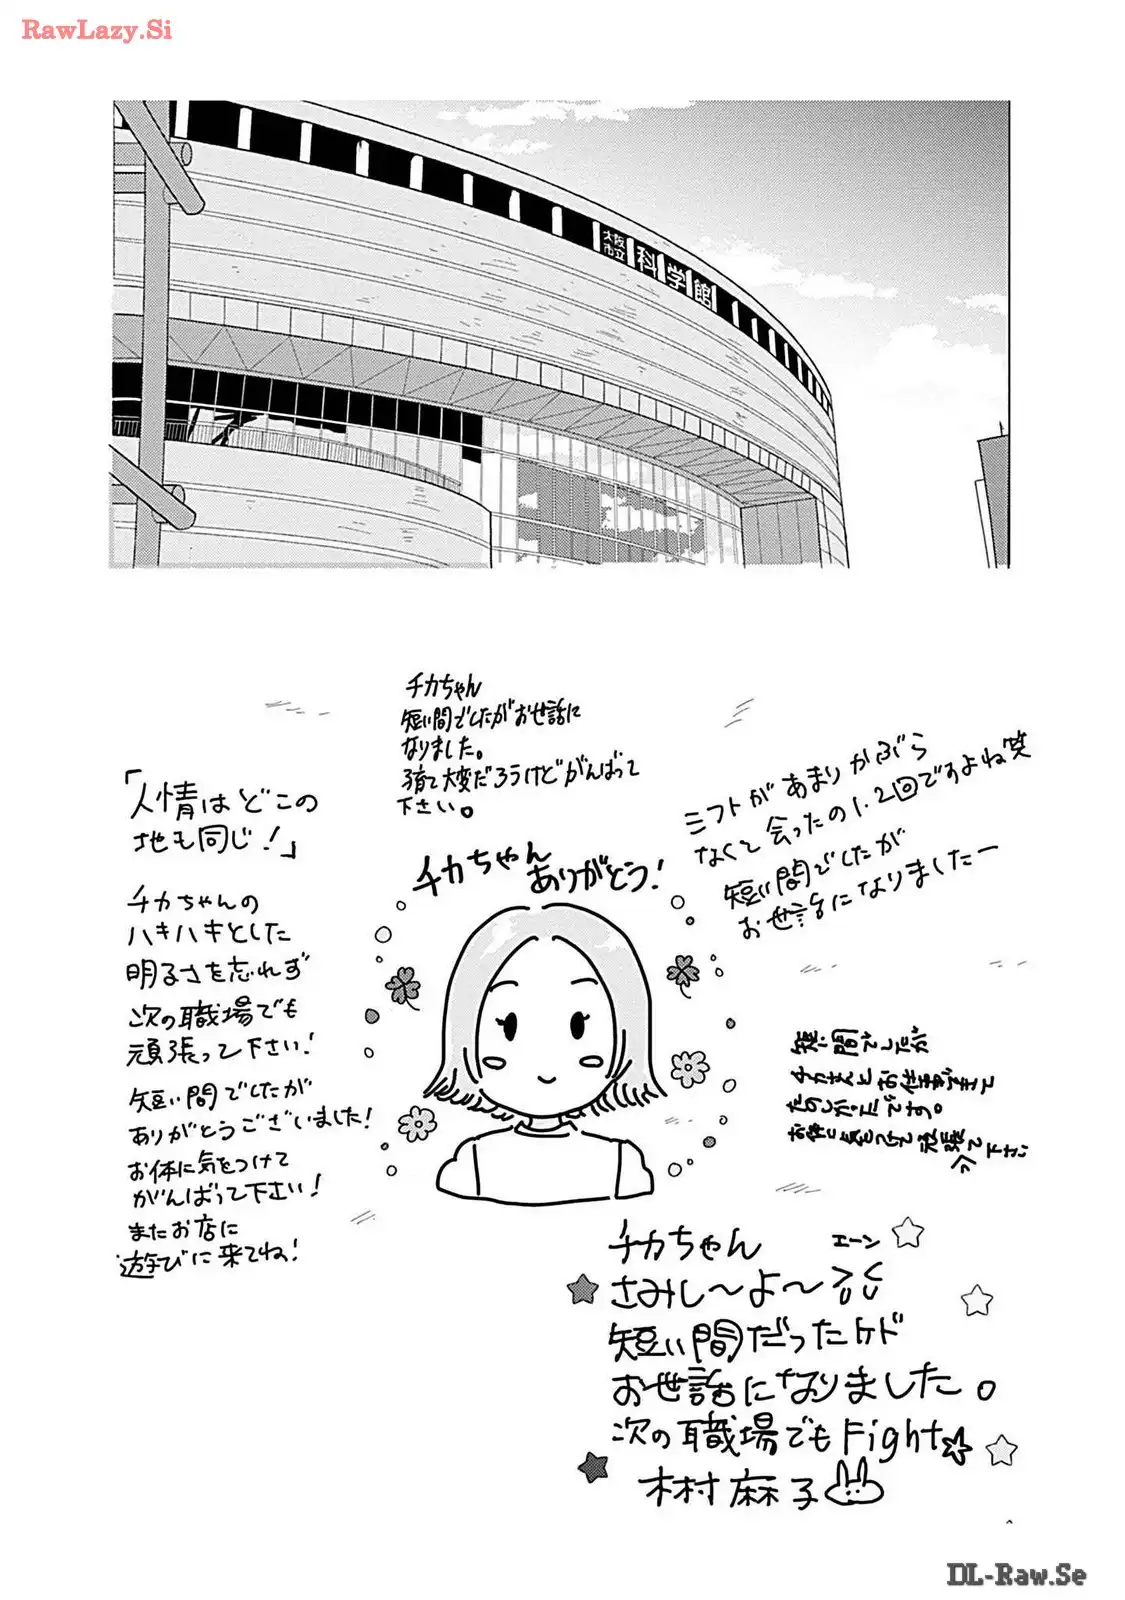 RawLazy.Si
大阪市立
科学館
チカちゃん
短い間でしたがお世話に
なりました。
子育て大変だろうけどがんばって
下さい。
「人情はどこの
地も同じ!」
チカちゃんの
ハキハキとした
明るさを忘れず
次の職場でも
頑張って下さい!
短い間でしたが
ありがとうございました!
お体に気をつけて
がんばって下さい!
またお店に
遊びに来てね!
チカちゃん
ありがとう!
シフトがあまりかぶら
なくて会ったの1.2回ですよね笑
短い間でしたが
お世話になりましたー
短い間でしたが
チカさんとお仕事ができて
たのしかったです。
お体に気をつけて頑張って下さい
チカちゃん
さみし〜よ〜
エーン
短い間だったケド
お世話になりました。
次の職場でもFight☆
木村麻子
DL-Raw.Se